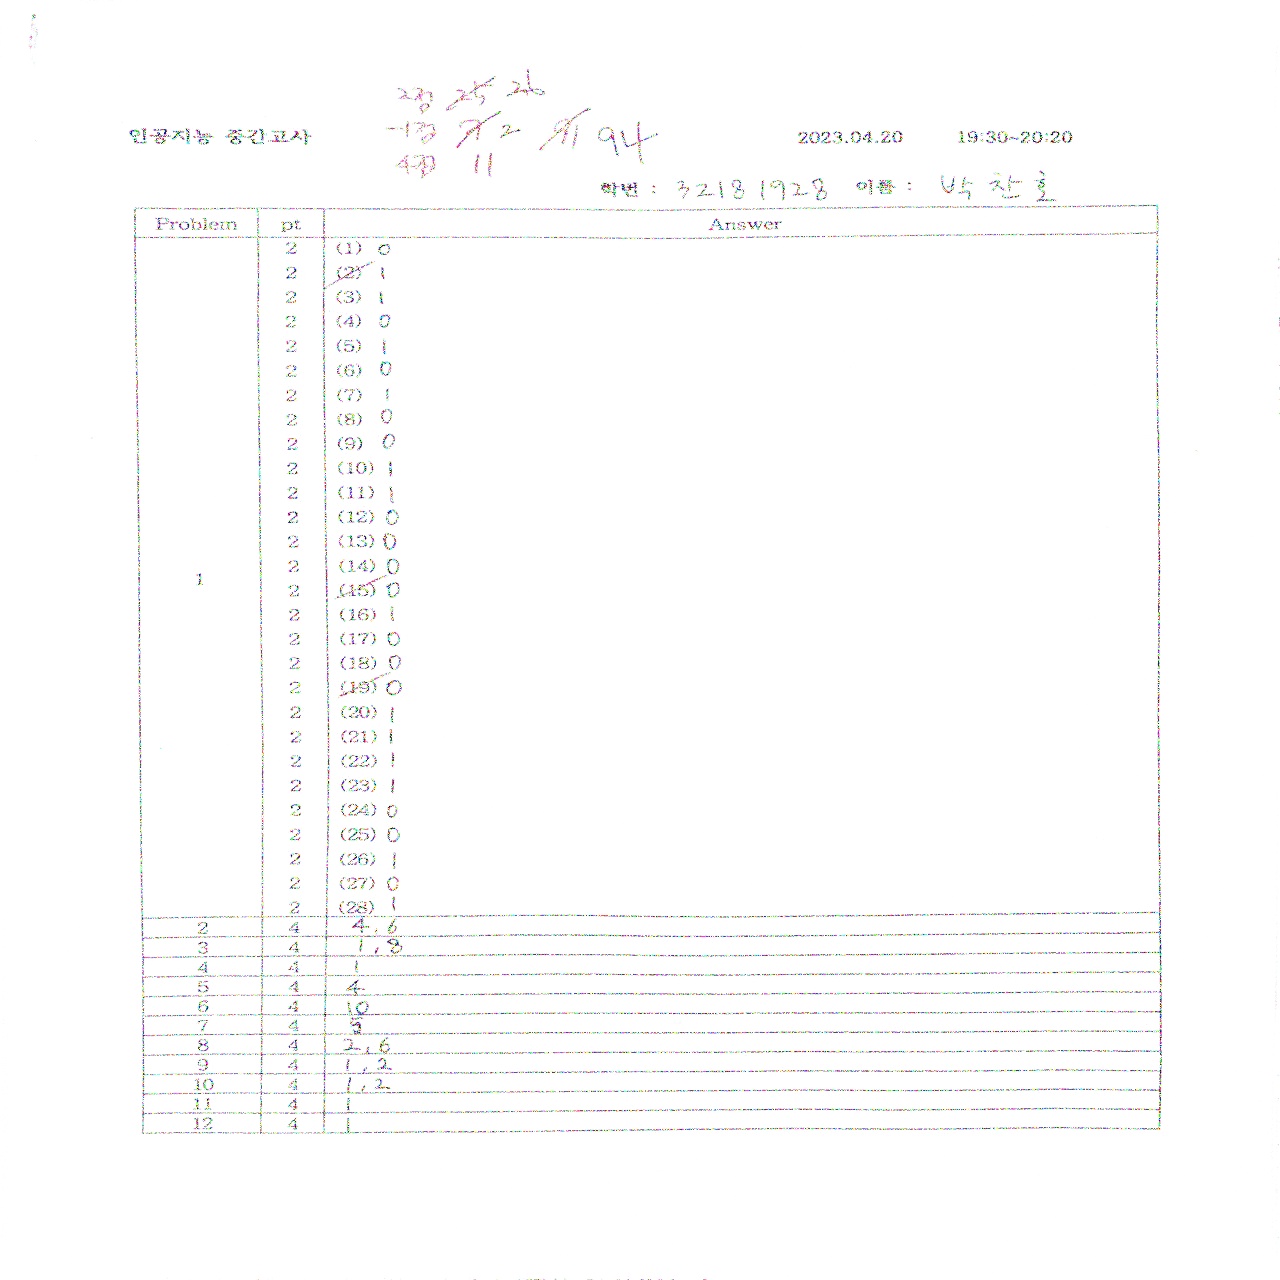 2점 25 26
인공지능 중간고사 -1점 2 91 94 2023.04.20 19:30~20:20
4점 11
학번 : 32181928 이름 : 박찬호
Problem pt Answer
1
2 (1) 0
2 (2) 1
2 (3) 1
2 (4) 0
2 (5) 1
2 (6) 0
2 (7) 1
2 (8) 0
2 (9) 0
2 (10) 1
2 (11) 1
2 (12) 0
2 (13) 0
2 (14) 0
2 (15) 0
2 (16) 1
2 (17) 0
2 (18) 0
2 (19) 0
2 (20) 1
2 (21) 1
2 (22) 1
2 (23) 1
2 (24) 0
2 (25) 0
2 (26) 1
2 (27) 0
2 (28) 1
2 4 4, 6
3 4 1, 8
4 4 1
5 4 4
6 4 10
7 4
8 4 2, 6
9 4 1, 2
10 4 1, 2
11 4 1
12 4 1